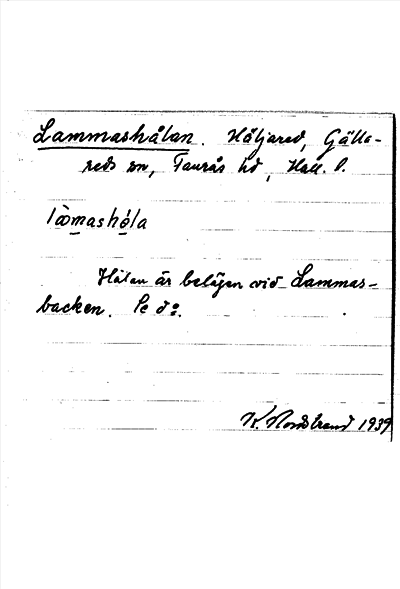 Lammashålan. Håljared, Gälla-
reds sn, Faurås hd, Hall. l.
lòmashóla
Hålan är belägen vid Lammas-
backen. Se d:o.
K. Nordstrand 1939